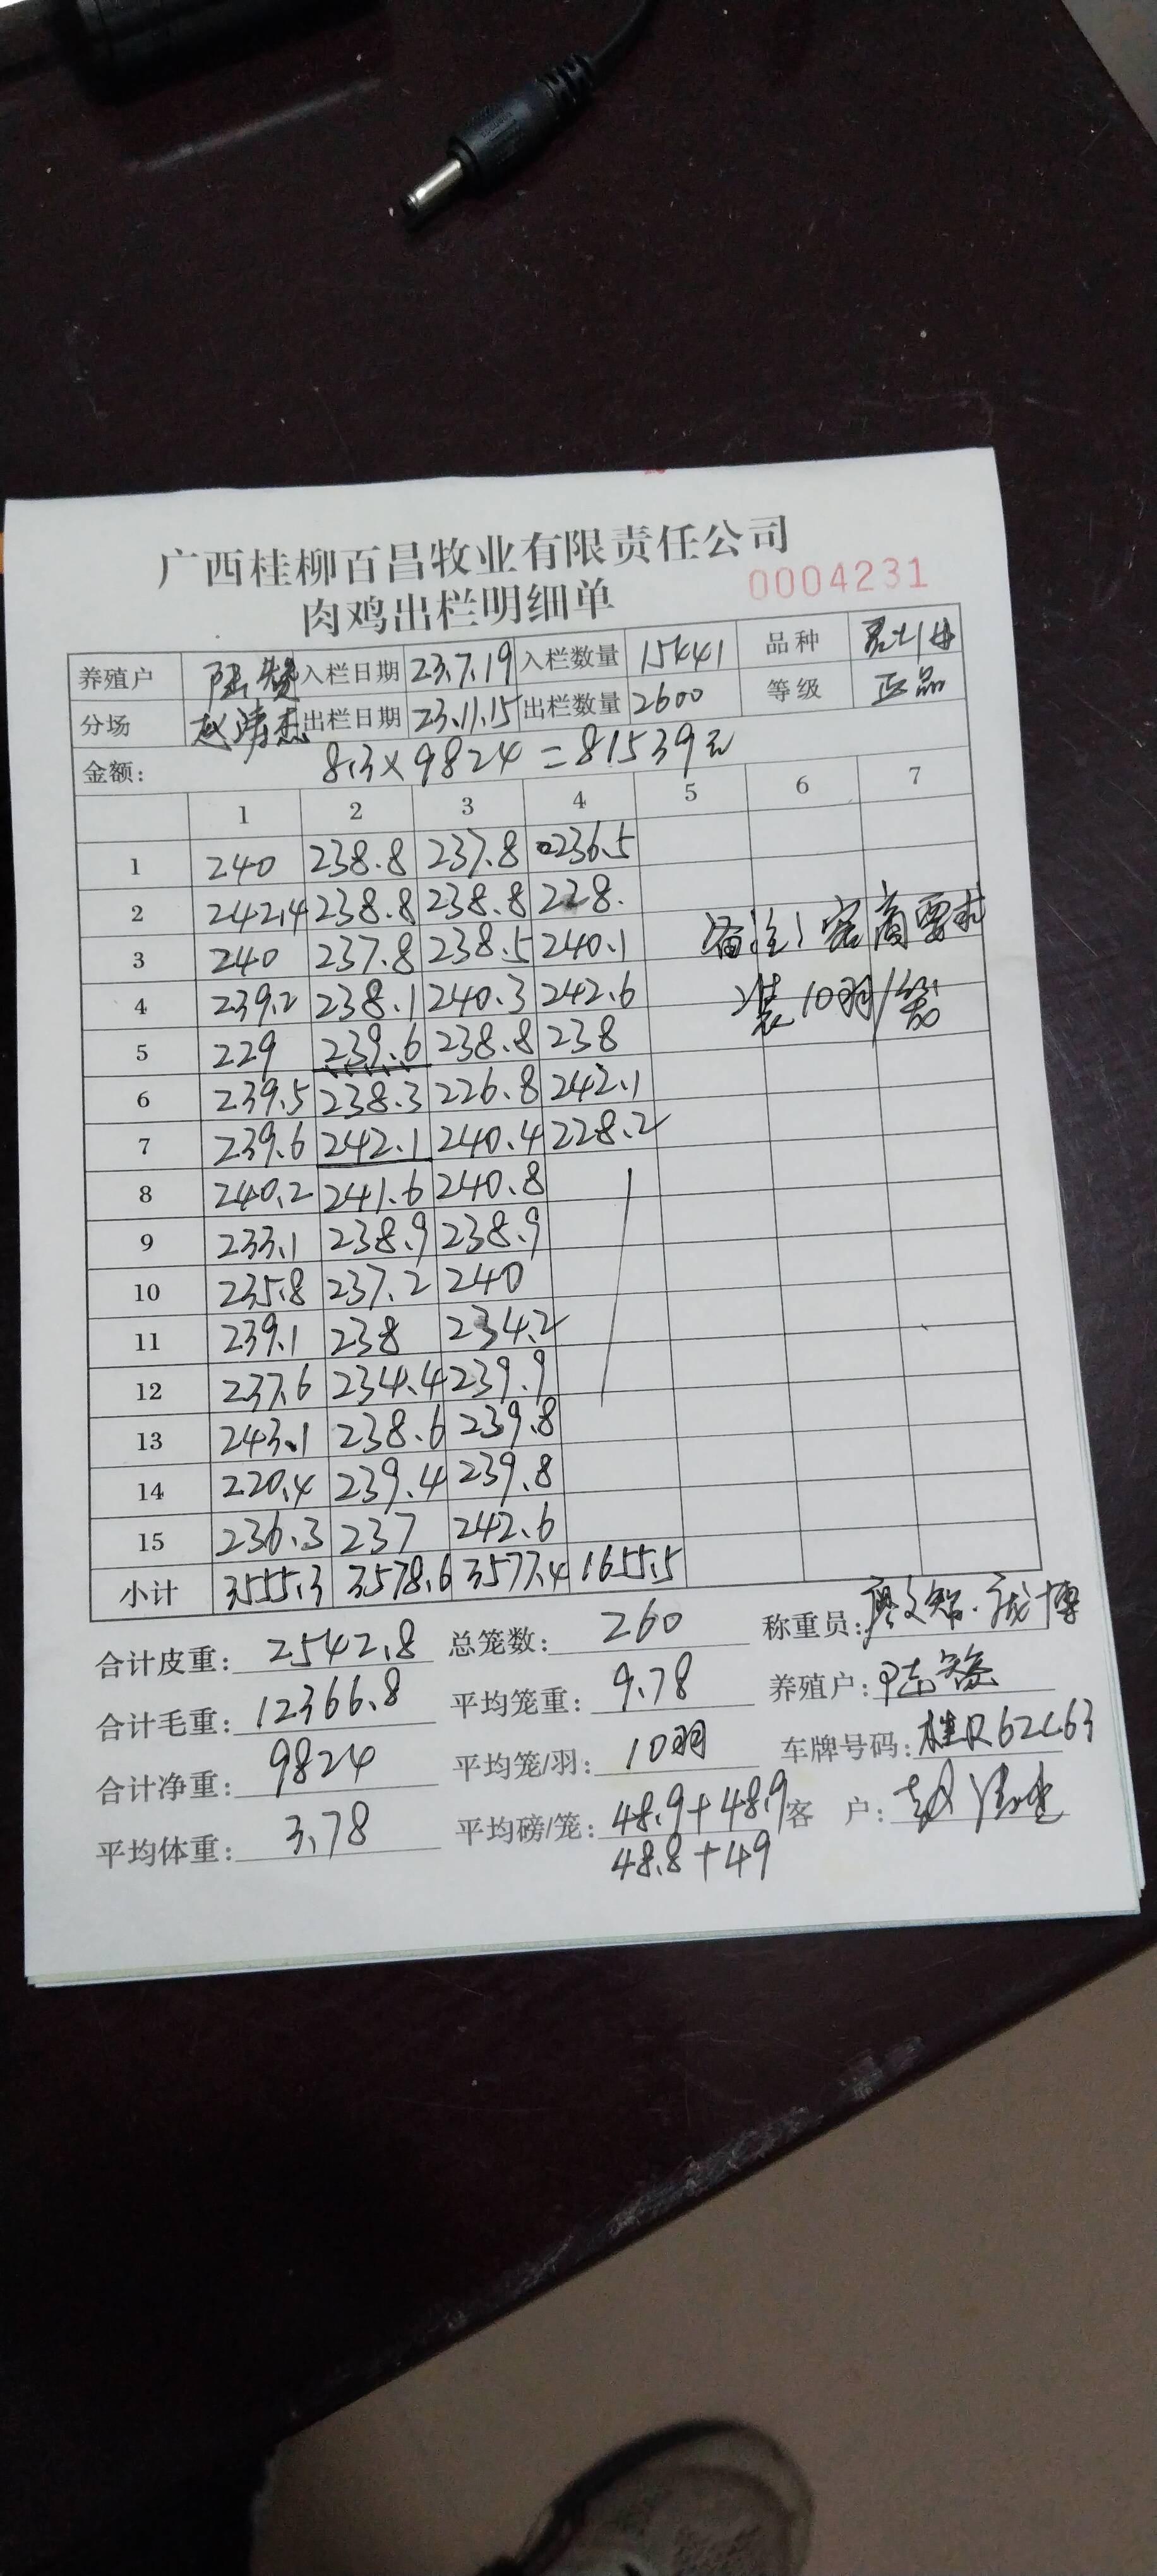 广西桂柳百昌牧业有限责任公司
肉鸡出栏明细单 0004231
养殖户 入栏日期 23.7.19 入栏数量 15441 品种
分场 赵涛杰 出栏日期 23.11.15 出栏数量 2600 等级 正品
金额: 8.3×9824=81539元
1 2 3 4 5 6 7
1 240 238.8 237.8 236.5
2 242.4 238.8 238.8 228.
3 240 237.8 238.5 240.1 备注:客商要求
4 239.2 238.1 240.3 242.6 装10羽/笼
5 229 239.6 238.8 238
6 239.5 238.3 226.8 242.1
7 239.6 242.1 240.4 228.2
8 240.2 241.6 240.8
9 233.1 238.9 238.9
10 235.8 237.2 240
11 239.1 238 234.2
12 237.6 234.4 239.9
13 243.1 238.6 239.8
14 220.4 239.4 239.8
15 236.3 237 242.6
小计 3555.3 3578.6 3577.4 1655.5
合计皮重: 2542.8 总笼数: 260 称重员:
合计毛重: 12366.8 平均笼重: 9.78 养殖户:
合计净重: 9824 平均笼/羽: 10羽 车牌号码: 桂R62C63
平均体重: 3.78 平均磅/笼: 48.9+48.9 客 户:
48.8+49